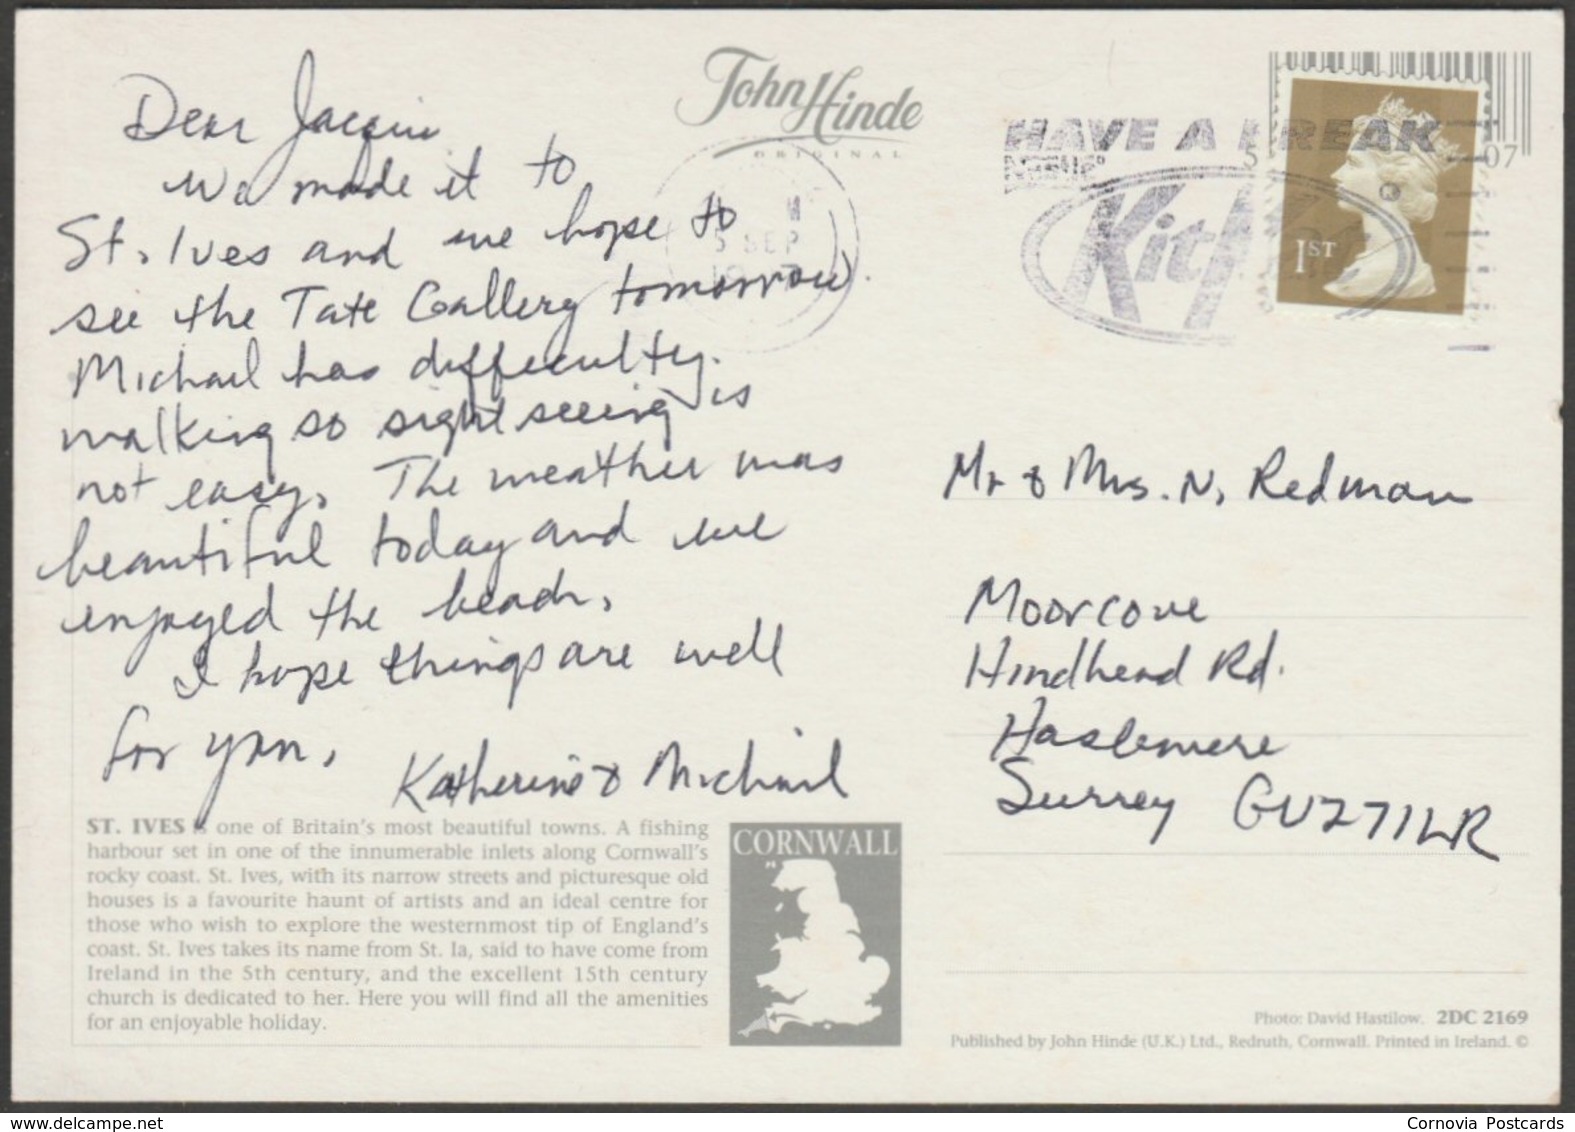 Dear Jacquie
We made it to
St. Ives and we hope to
see the Tate Gallery tomorrow.
Michael has difficulty
walking so sightseeing is
not easy. The weather was
beautiful today and we
enjoyed the beach.
I hope things are well
for you,
Katherine & Michael
ST. IVES is one of Britain's most beautiful towns. A fishing
harbour set in one of the innumerable inlets along Cornwall's
rocky coast. St. Ives, with its narrow streets and picturesque old
houses is a favourite haunt of artists and an ideal centre for
those who wish to explore the westernmost tip of England's
coast. St. Ives takes its name from St. Ia, said to have come from
Ireland in the 5th century, and the excellent 15th century
church is dedicated to her. Here you will find all the amenities
for an enjoyable holiday.
CORNWALL
John Hinde
ORIGINAL
5 SEP
HAVE A BREAK
Kit
1ST
07
Mr & Mrs. N. Redman
Moorcove
Hindhead Rd.
Haslemere
Surrey GU27 1LR
Photo: David Hastilow. 2DC 2169
Published by John Hinde (U.K.) Ltd., Redruth, Cornwall. Printed in Ireland. ©
delcampe.net
Cornovia Postcards